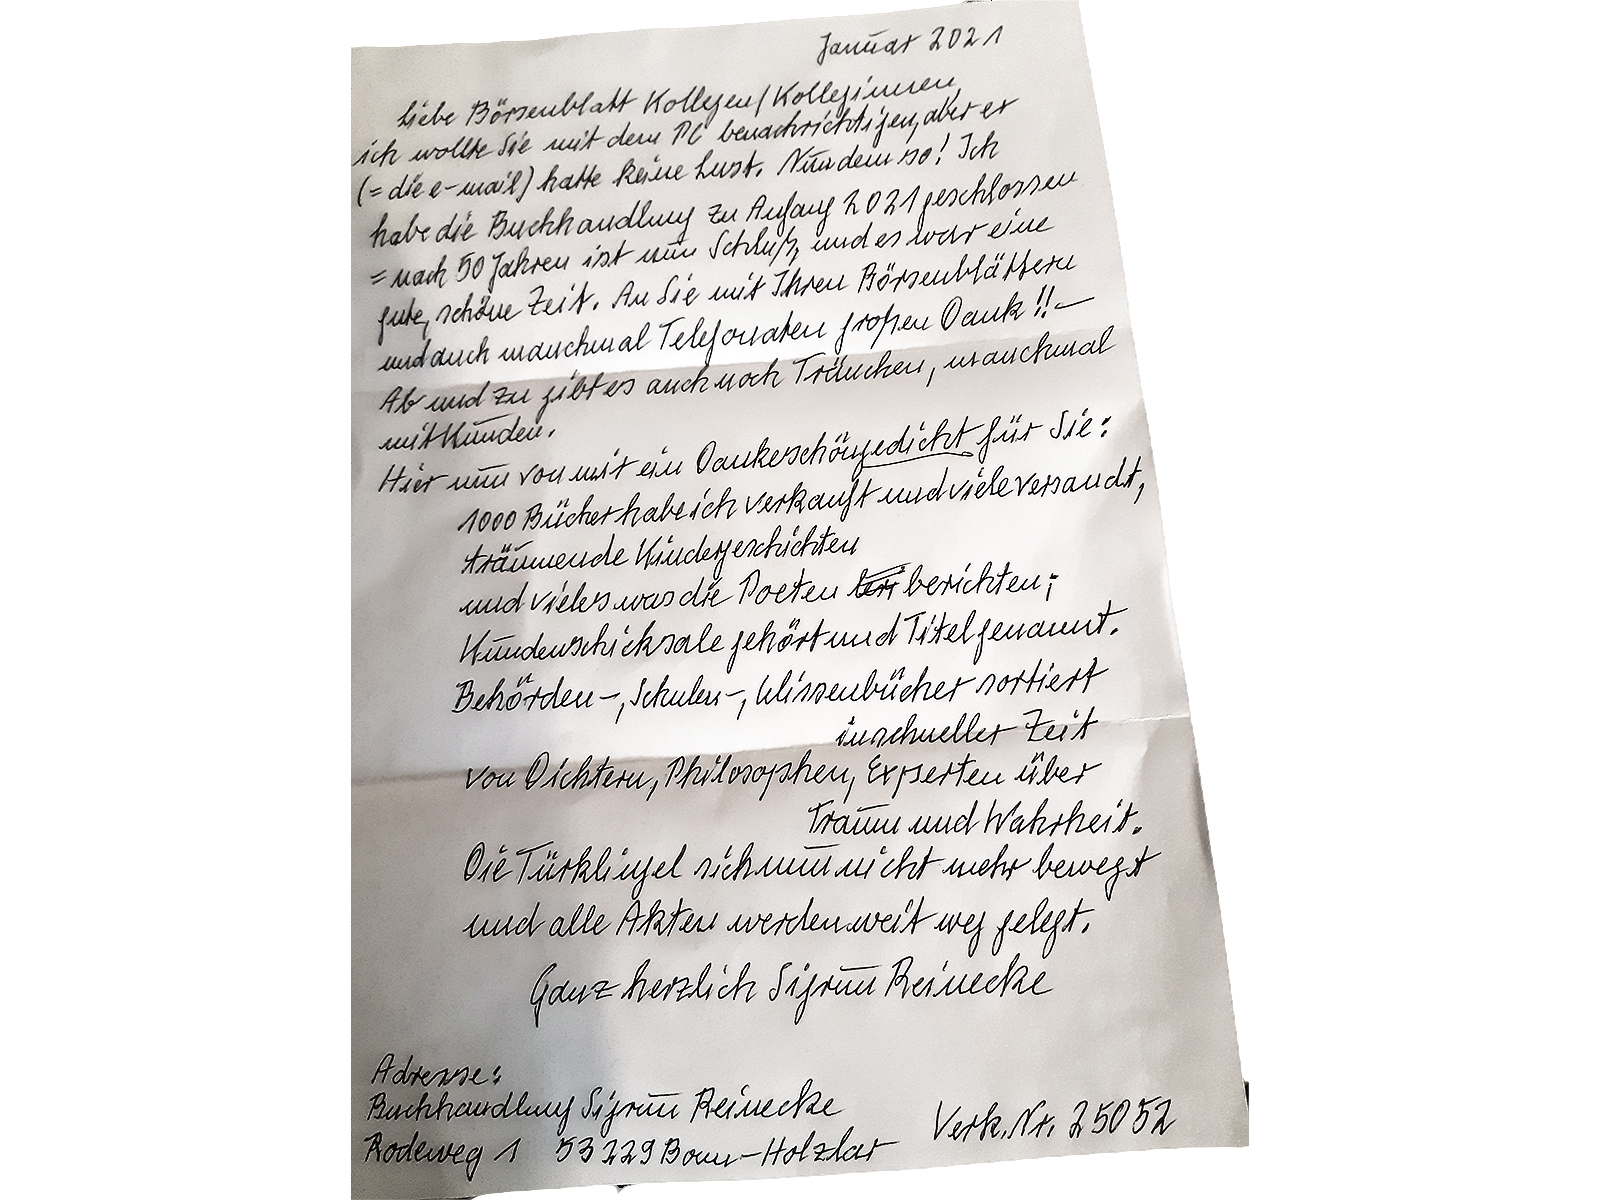 Januar 2021
Liebe Börsenblatt Kollegen/Kolleginnen,
ich wollte Sie mit dem PC benachrichtigen, aber er
(= die e-mail) hatte keine Lust. Nun denn so! Ich
habe die Buchhandlung zu Anfang 2021 geschlossen
= nach 50 Jahren ist nun Schluß, und es war eine
gute, schöne Zeit. An Sie mit Ihren Börsenblättern
und auch manchmal Telefonaten großen Dank!! –
Ab und zu gibt es auch noch Tränchen, manchmal
mit Kunden.
Hier nun von mir ein Dankeschöngedicht für Sie:
1000 Bücher habe ich verkauft und viele versandt,
träumende Kindergeschichten
und vieles was die Poeten berichten;
Kundenschicksale gehört und Titel genannt.
Behörden-, Schulen-, Wissenbücher sortiert
in schneller Zeit
von Dichtern, Philosophen, Experten über
Traum und Wahrheit.
Die Türklingel sich nun nicht mehr bewegt
und alle Akten werden weit weg gelegt.
Ganz herzlich Sigrun Reinecke
Adresse:
Buchhandlung Sigrun Reinecke
Rodeweg 1 53229 Bonn-Holzlar
Verk. Nr. 25052